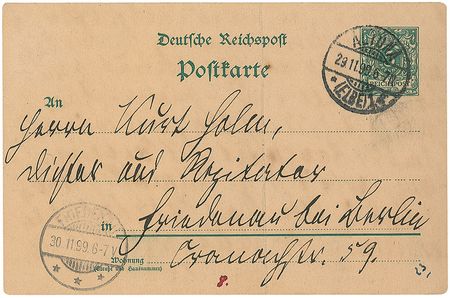 Deutsche Reichspost
Postkarte
29.11.99.6-7N.
* (ELBE) 1.*
REICHSPOST
An
Herrn Kurt Holm,
Dichter und Rezitator
in Friedenau bei Berlin
FRIEDENAU
30.11.99.6-7V.
Wohnung
(Straße und Hausnummer)
Cranachstr. 59.
8.